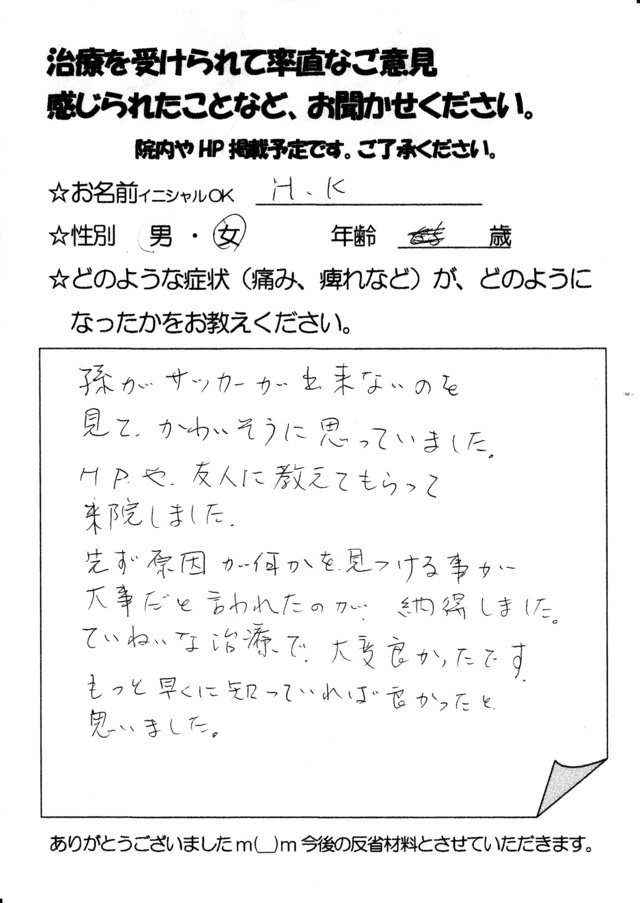 治療を受けられて率直なご意見
感じられたことなど、お聞かせください。
院内やHP掲載予定です。ご了承ください。
☆お名前イニシャルOK H.K
☆性別 男・女 年齢 歳
☆どのような症状（痛み、痺れなど）が、どのように
なったかをお教えください。
孫がサッカーが出来ないのを
見て、かわいそうに思っていました。
HPや、友人に教えてもらって
来院しました。
先ず原因が何かを見つける事が
大事だと言われたのが、納得しました。
ていねいな治療で、大変良かったです。
もっと早くに知っていれば良かったと
思いました。
ありがとうございましたm(__)m今後の反省材料とさせていただきます。